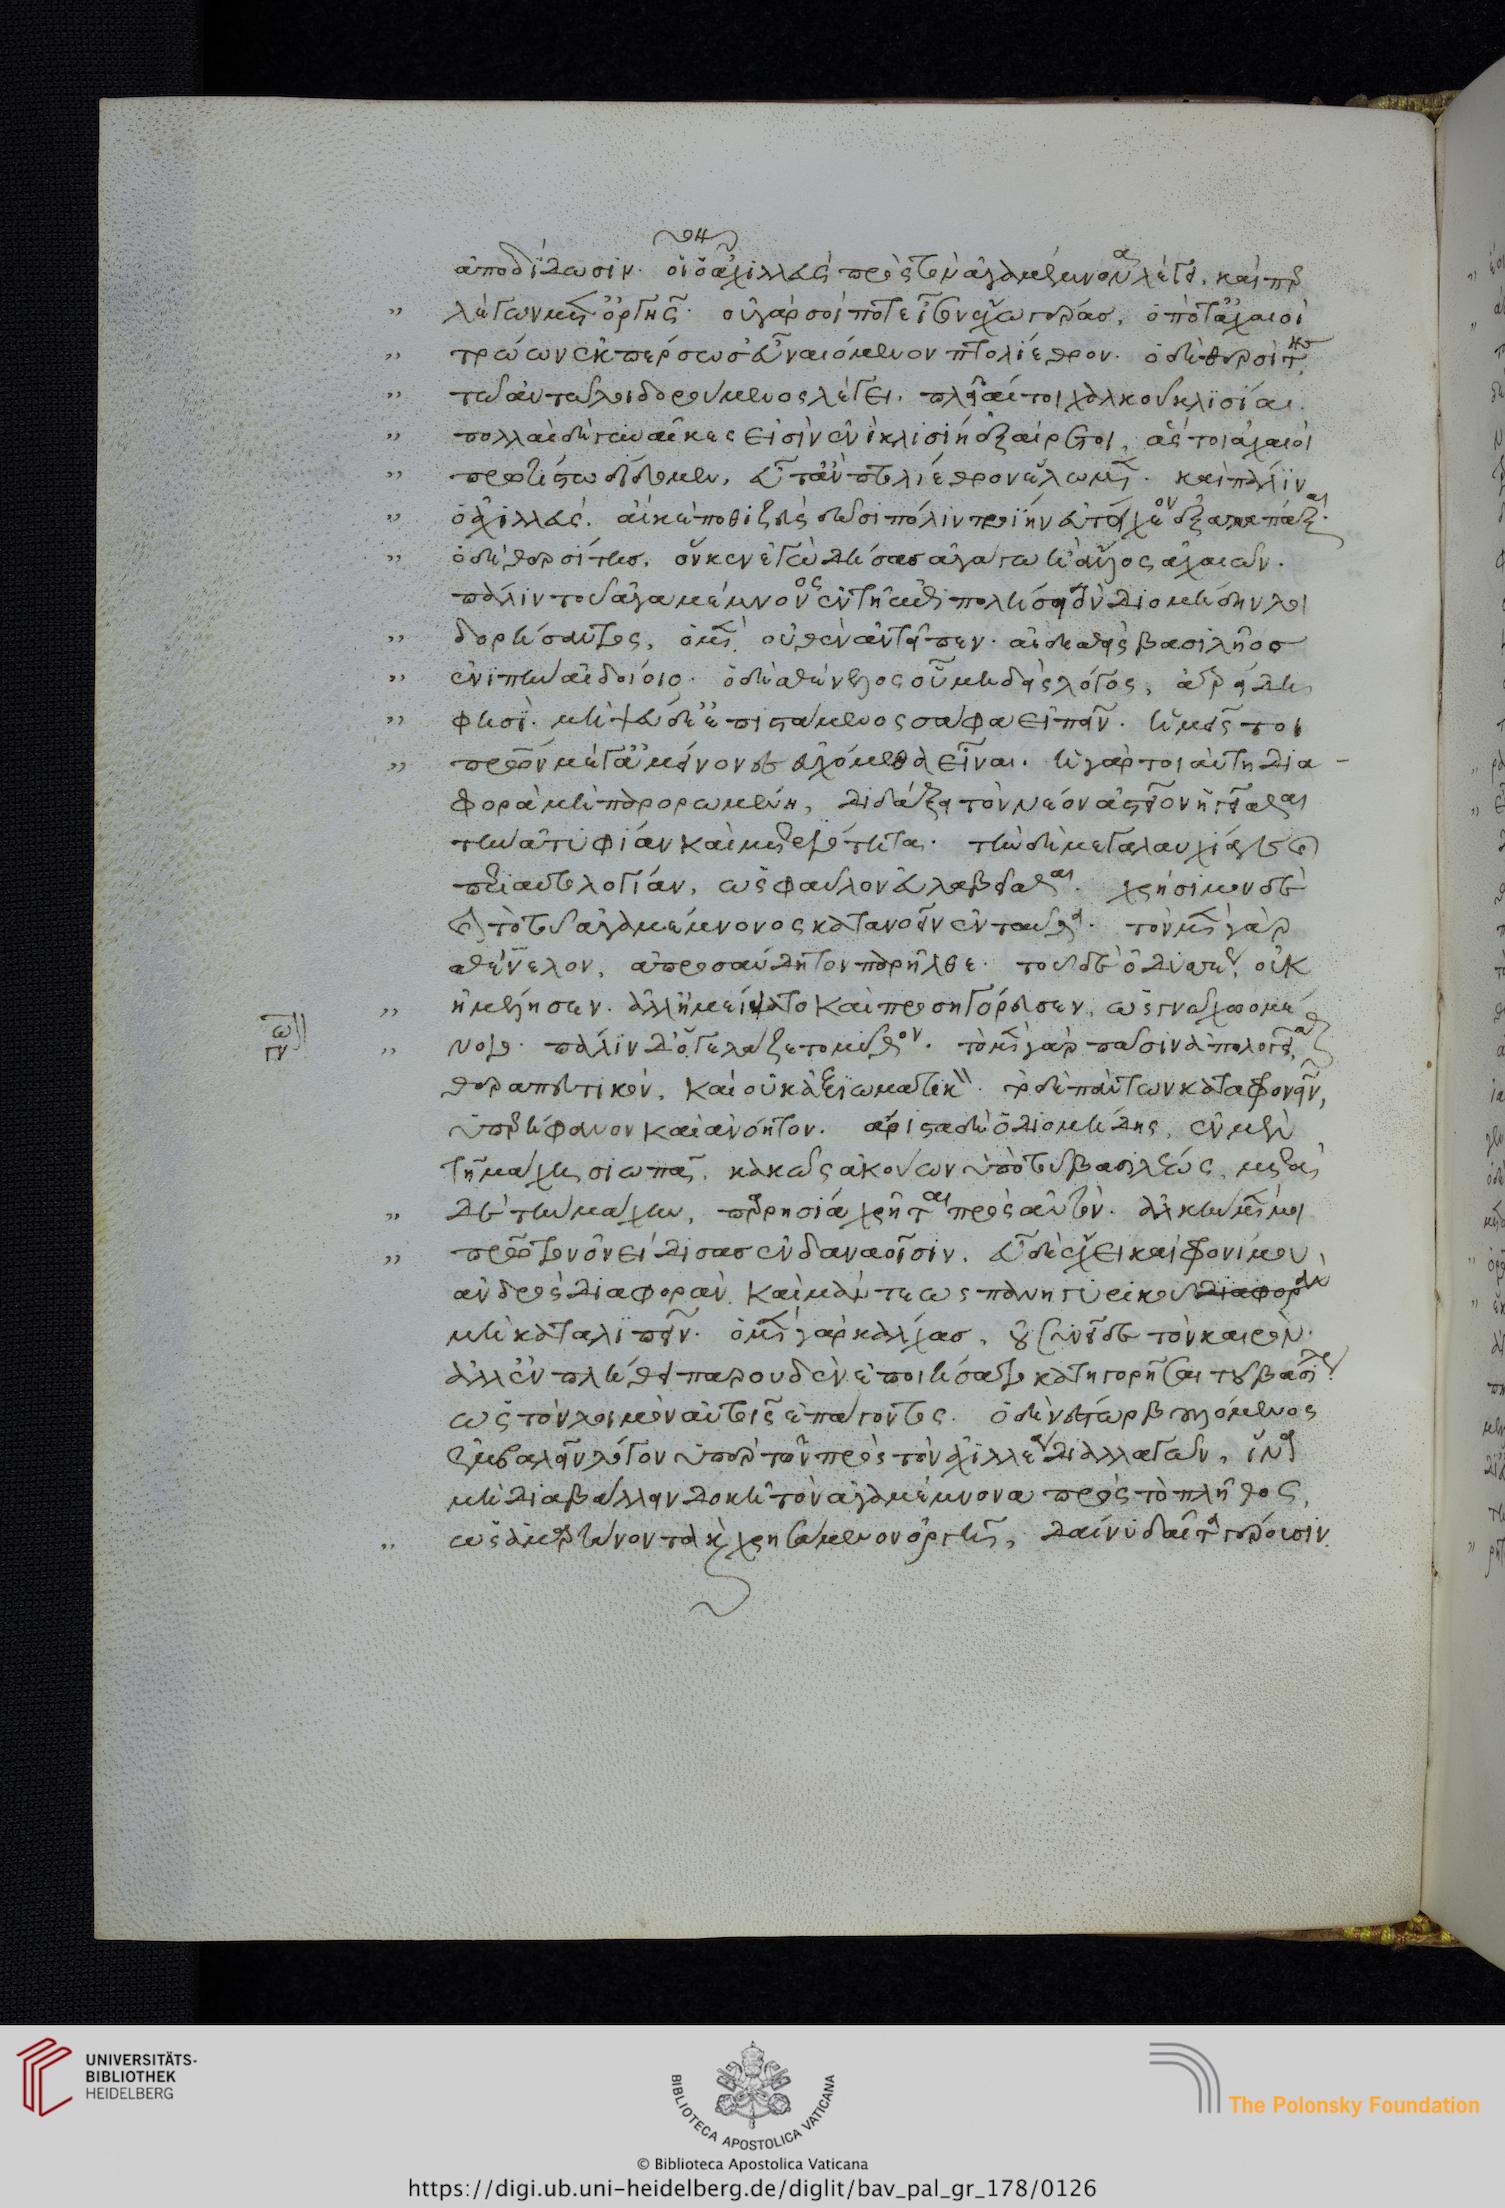 ἀποδίδωσιν. οἷον ὁ ἀχιλλεὺς πρὸς τὸν ἀγαμέμνονα λέγει, καίπερ
λέγων μετ' ὀργῆς. οὐ γάρ σοί ποτε ἶσον ἔχω γέρας, ὁπότ' ἀχαιοὶ
τρώων ἐκπέρσωσ' εὖ ναιόμενον πτολίεθρον. ὁ δὲ θερσίτης
τῶ αὐτῶ λοιδορούμενος λέγει. πλεῖαί τοι χαλκοῦ κλισίαι.
πολλαὶ δὲ γυναῖκες εἰσὶν ἐνὶ κλισίη ἐξαίρετοι, ἅς τοι ἀχαιοὶ
πρωτίστω δίδομεν, εὖτ' ἂν πτολίεθρον ἕλωμεν. καὶ πάλιν
ὁ ἀχιλλεύς. αἴ κέ ποθι ζεὺς δῶσι πόλιν τροίην εὐτείχεον ἐξαλαπάξαι.
ὁ δὲ θερσίτης. ὅν κεν ἐγὼ δήσας ἀγάγω ἢ ἄλλος ἀχαιῶν.
πάλιν τοῦ ἀγαμέμνονος ἐν τῆ ἐπιπολήσει τὸν διομήδην λοι
δορήσαντος, ὁ μὲν οὐδὲν ἀντεῖπεν. αἰδεσθεὶς βασιλῆος
ἐνιπὴν αἰδοίοιο. ὁ δὲ σθένελος οὗ μηδεὶς λόγος, ἀτρείδη
φησὶ. μὴ ψεύδε' ἐπιστάμενος σάφα εἰπεῖν. ἡμεῖς τοι
πατέρων μέγ' ἀμείνονες εὐχόμεθα εἶναι. ἡ γὰρ τοιαύτη δια-
φορὰ μὴ παρορωμένη, διδάξει τὸν νέον ἀστεῖον ἡγεῖσθαι
τὴν ἀτυφίαν καὶ μετριότητα. τὴν δὲ μεγαλαυχίαν καὶ
περιαυτολογίαν, ὡς φαῦλον εὐλαβεῖσθαι. χρήσιμον δὲ
καὶ τὸ τοῦ ἀγαμέμνονος κατανοεῖν ἐνταῦθα. τὸν μὲν γὰρ
σθένελον, ἀπροσαύδητον παρῆλθε. τοῦ δὲ ὀδυσσέως οὐκ
ἠμέλησεν. ἀλλ' ἠμείψατο καὶ προσηγόρευσεν, ὡς γνῶ χωομέ
νοιο. πάλιν δ' ὅγε λάζετο μῦθον. τὸ μὲν γὰρ πᾶσιν ἀπολογεῖσθαι
θεραπευτικὸν, καὶ οὐκ ἀξιωματικόν. τὸ δὲ πάντων καταφρονεῖν,
ὑπερήφανον καὶ ἀνόητον. ἄριστα δὲ ὁ διομήδης, ἐν μὲν
τῆ μάχη σιωπᾶ, κακῶς ἀκούων ὑπὸ τοῦ βασιλέως, μετὰ
δὲ τὴν μάχην, παρρησία χρῆται πρὸς αὐτόν. ἀλκὴν μέν μοι
πρῶτον ὀνείδισας ἐν δαναοῖσιν. εὖ δὲ ἔχει καὶ φρονίμου
ἀνδρὸς διαφορὰν καὶ μάντεως πανηγυρικοῦ διαφορὰν
μὴ καταλιπεῖν. ὁ μὲν γὰρ κάλχας, οὐ συνεῖδε τὸν καιρὸν.
ἀλλ' ἐν πλήθει παρ' οὐδὲν ἐποιήσατο κατηγορῆσαι τοῦ βασιλέως
ὡς τὸν λοιμὸν αὐτοῖς ἐπάγοντος. ὁ δὲ νέστωρ βουλόμενος
ἐμβαλεῖν λόγον ὑπὲρ τῶν πρὸς τὸν ἀχιλλέα διαλλαγῶν, ἵνα
μὴ διαβάλλειν δοκῆ τὸν ἀγαμέμνονα πρὸς τὸ πλῆθος,
ὡς ἁμαρτάνοντα καὶ χρησάμενον ὀργῆ, δαίνυ δαῖτα γέρουσιν.
UNIVERSITÄTS-
BIBLIOTHEK
HEIDELBERG
BIBLIOTECA APOSTOLICA VATICANA
© Biblioteca Apostolica Vaticana
The Polonsky Foundation
https://digi.ub.uni-heidelberg.de/diglit/bav_pal_gr_178/0126